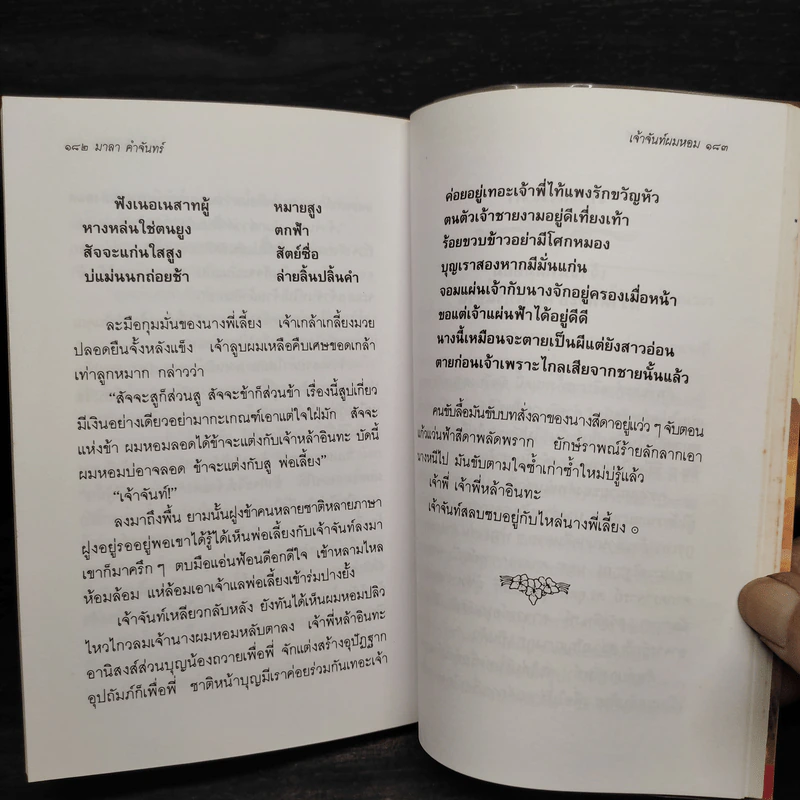 ๑๘๒ มาลา คำจันทร์
ฟังเนอเนสาทผู้ หมายสูง
หางหล่นใช่ตนยูง ตกฟ้า
สัจจะแก่นใสสูง สัตย์ซื่อ
บ่แม่นนกถ่อยช้า ล่ายลิ้นปลิ้นคำ
ละมือกุมมั่นของนางพี่เลี้ยง เจ้าเกล้าเกลี้ยงมวย
ปลอดยืนจั้งหลังแข็ง เจ้าลูบผมเหลือคืบเศษขอดเกล้า
เท่าลูกหมาก กล่าวว่า
“สัจจะสูก็ส่วนสู สัจจะข้าก็ส่วนข้า เรื่องนี้สูบ่เกี่ยว
มีเงินอย่างเดียวอย่ามากะเกณฑ์เอาแต่ใจใฝ่มัก สัจจะ
แห่งข้า ผมหอมลอดได้ข้าจะแต่งกับเจ้าหล้าอินทะ บัดนี้
ผมหอมบ่อาจลอด ข้าจะแต่งกับสู พ่อเลี้ยง”
“เจ้าจันท์!”
ลงมาถึงพื้น ยามนั้นฝูงข้าคนหลายชาติหลายภาษา
ฝูงอยู่รออยู่พอเขาได้รู้ได้เห็นพ่อเลี้ยงกับเจ้าจันท์ลงมา
เขาก็มาครึกๆ ตบมือแอ่นฟ้อนดีอกดีใจ เข้าหลามไหล
ห้อมล้อม แห่ล้อมเอาเจ้าแลพ่อเลี้ยงเข้าร่มปางยั้ง
เจ้าจันท์เหลียวกลับหลัง ยังทันได้เห็นผมหอมปลิว
ไหวไกวลมเจ้านางผมหอมหลับตาลง เจ้าพี่หล้าอินทะ
อานิสงส์ส่วนบุญน้องถวายเพื่อพี่ จักแต่งสร้างอุปัฏฐาก
อุปถัมภ์ก็เพื่อพี่ ชาติหน้าบุญมีเราค่อยร่วมกันเทอะเจ้า
เจ้าจันท์ผมหอม ๑๘๓
ค่อยอยู่เทอะเจ้าพี่ไท้แพงรักขวัญหัว
ตนตัวเจ้าชายงามอยู่ดีเที่ยงเท้า
ร้อยขวบข้าวอย่ามีโศกหมอง
บุญเราสองหากมีมั่นแก่น
จอมแผ่นเจ้ากับนางจักอยู่ครองเมื่อหน้า
ขอแต่เจ้าแผ่นฟ้าได้อยู่ดีดี
นางนี้เหมือนจะตายเป็นผีแต่ยังสาวอ่อน
ตายก่อนเจ้าเพราะไกลเสียจากชายนั้นแล้ว
คนขับลื้อมันขับบทสั่งลาของนางสีดาอยู่แว่วๆจับตอน
แก้วแว่นฟ้าสีดาพลัดพราก ยักษ์ราพณ์ร้ายลักลากเอา
นางหนีไป มันขับตามใจซ้ำเก่าซ้ำใหม่บ่รู้แล้ว
เจ้าพี่ เจ้าพี่หล้าอินทะ
เจ้าจันท์สลบซบอยู่กับไหล่นางพี่เลี้ยง ๏